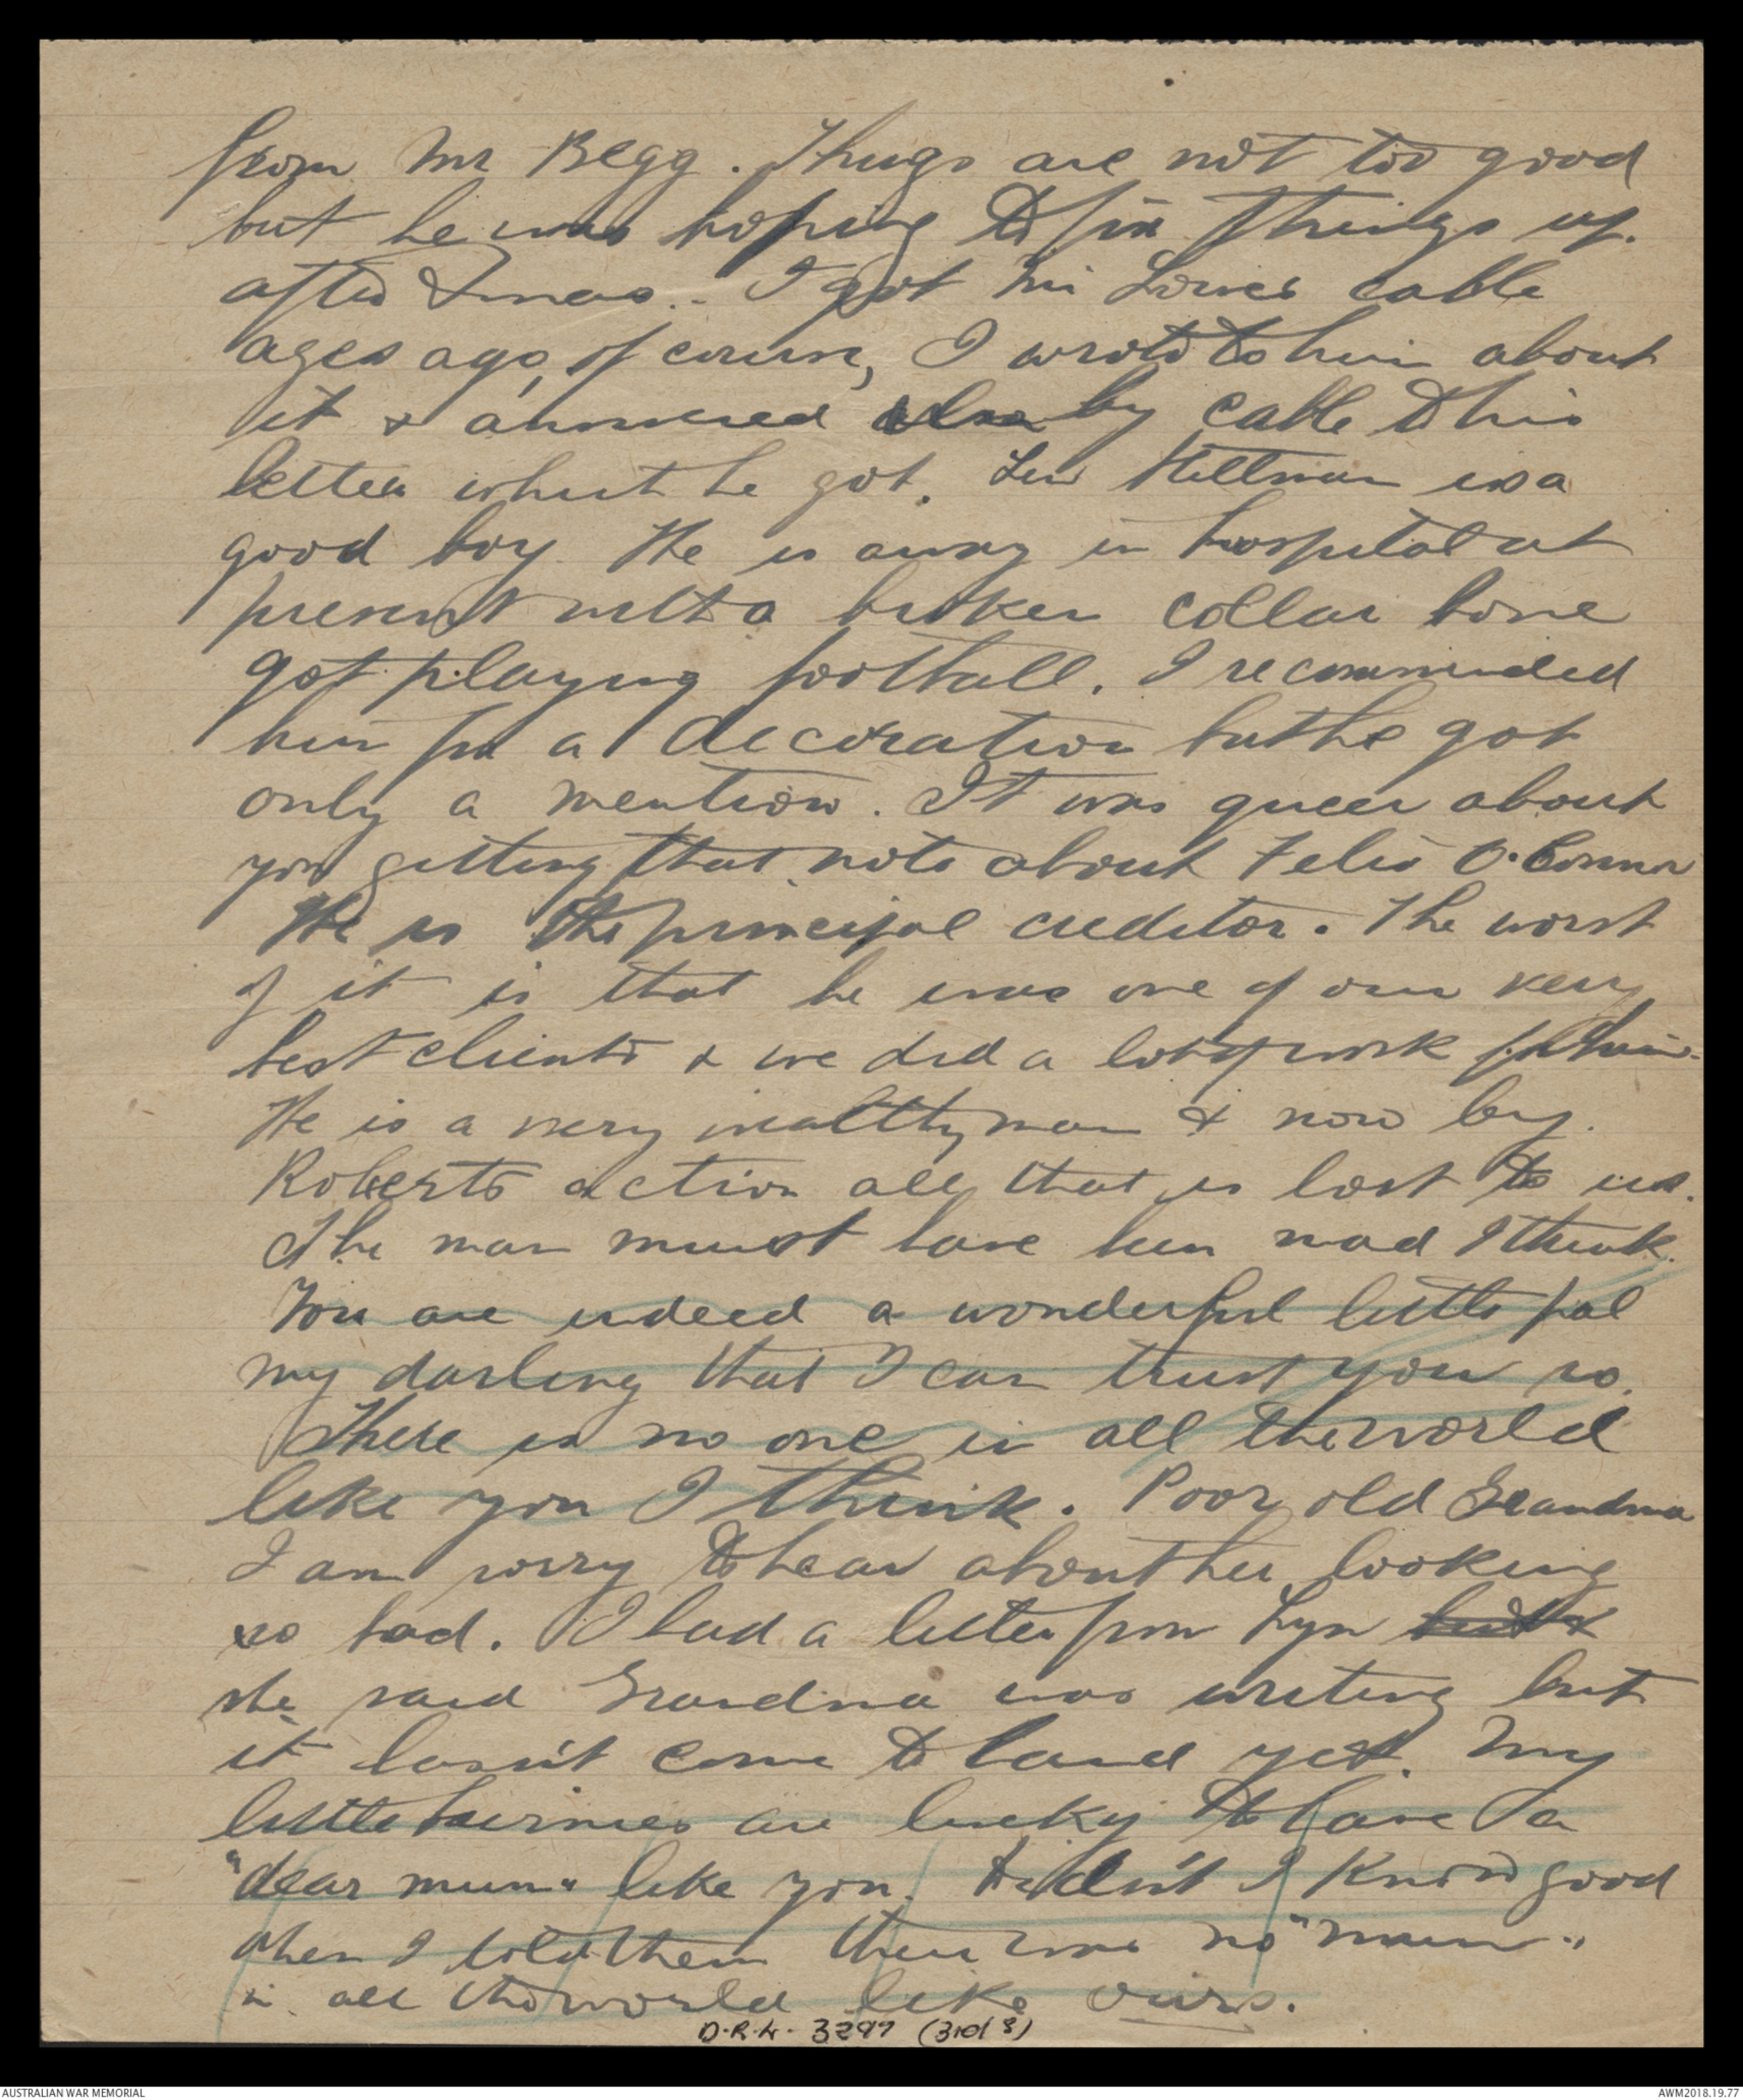 from Mr Begg. Things are not too good
but he was hoping to fix things up.
after Xmas.. I got Mr Lowes cable
ages ago, of course, I wrote to him about
it & answered also by cable to his
letter which he got. Len Stillman is a
good boy He is away in hospital at
present with a broken collar bone
got playing football. I recommended
him for a decoration but he got
only a mention. It was queer about
you getting that note about Felix O'Connor
He is the principal creditor. The worst
of it is that he was one of our very
best clients & we did a lot of work for him.
He is a very wealthy man & now by.
Roberts action all that is lost to us.
The man must have been mad I think.
You are indeed a wonderful little pal
my darling that I can trust you so.
There is no one in all the world
like you I think. Poor old Grandma
I am sorry to hear about her looking
so bad. I had a letter from Lyn
she said Grandma was writing but
it hasn't come to hand yet. My
little are lucky to have a
"dear mum" like you. Didn't I know good
when I told them there was no "mum"
in all the world like ours.
D.R.L. 3297 (3rd S)
AUSTRALIAN WAR MEMORIAL
AWM2018.19.77